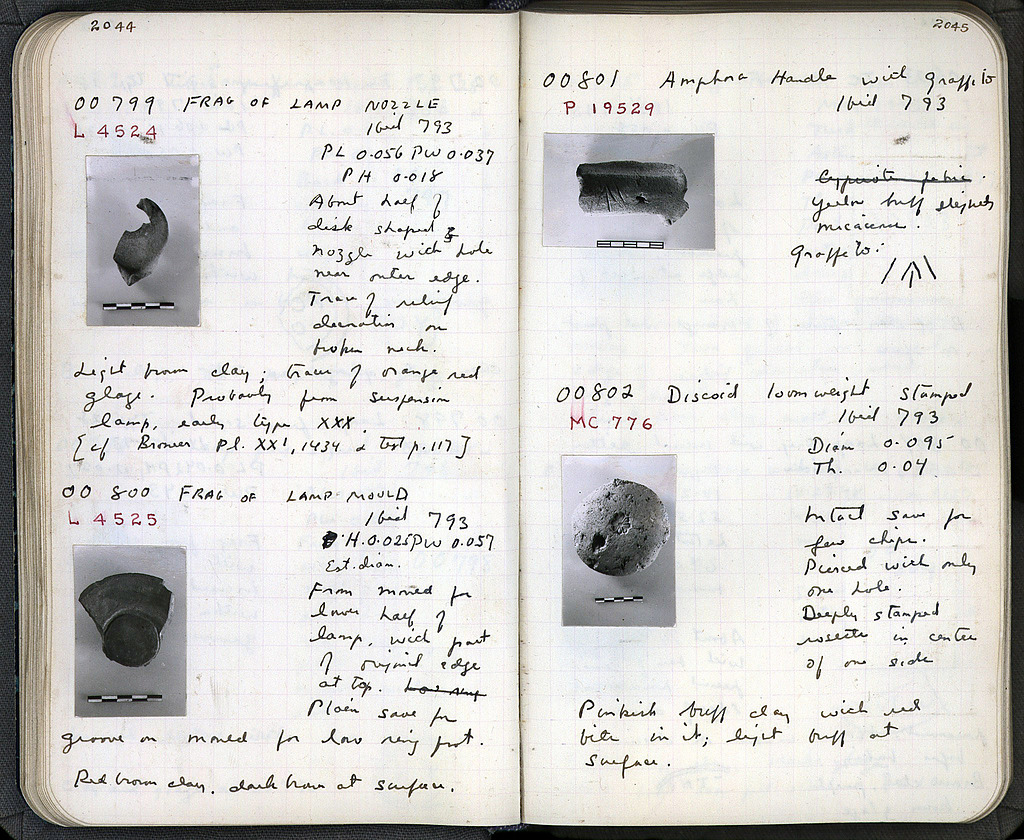 2044
00 799 FRAG OF LAMP NOZZLE
L 4524
Ibid 793
PL 0.056 PW 0.037
PH 0.018
About half of
disk shaped
nozzle with hole
near outer edge.
Trace of relief
decoration on
broken neck.
Light brown clay; traces of orange red
glaze. Probably from suspension
lamp, early type XXX
[cf Broneer Pl. XXI, 1434 & text p. 117]
00 800 FRAG OF LAMP MOULD
L 4525
Ibid 793
H. 0.025 PW 0.057
Est. diam.
From mould for
lower half of
lamp, with part
of original edge
at top.
Plain save for
groove on mould for low ring foot.
Red brown clay, dark brown at surface.
2045
00801 Amphora Handle with graffito
P 19529
Ibid 793
Cypriote fabric.
Yellow buff slightly
micaceous.
Graffito:
00802 Discoid loomweight stamped
MC 776
Ibid 793
Diam 0.095
Th. 0.04
Intact save for
few chips.
Pierced with only
one hole.
Deeply stamped
rosette in center
of one side
Pinkish buff clay with red
bits in it; light buff at
surface.